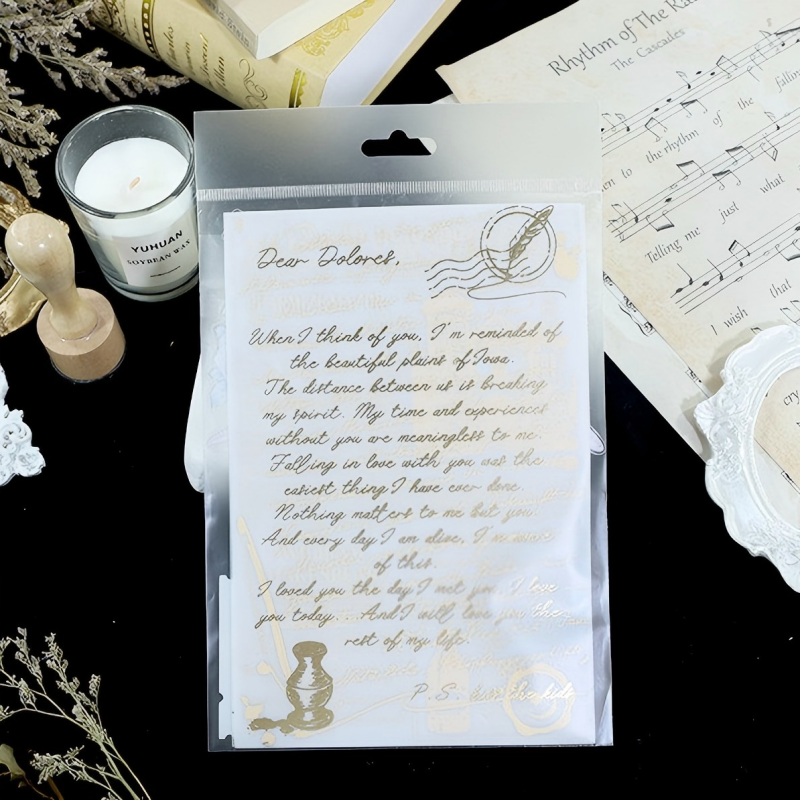 Rhythm of The
The Cascades
the
falling
to the rhythm of
Telling me just what
I wish that
cry
YUHUAN
SOYBEAN WAX
Dear Dolores,
When I think of you, I'm reminded of
the beautiful plains of Iowa.
The distance between us is breaking
my spirit. My time and experiences
without you are meaningless to me.
Falling in love with you was the
easiest thing I have ever done.
Nothing matters to me but you.
And every day I am alive, I'm aware
of this.
I loved you the day I met you, I love
you today... And I will love you the
rest of my life.
P.S. kiss the kids